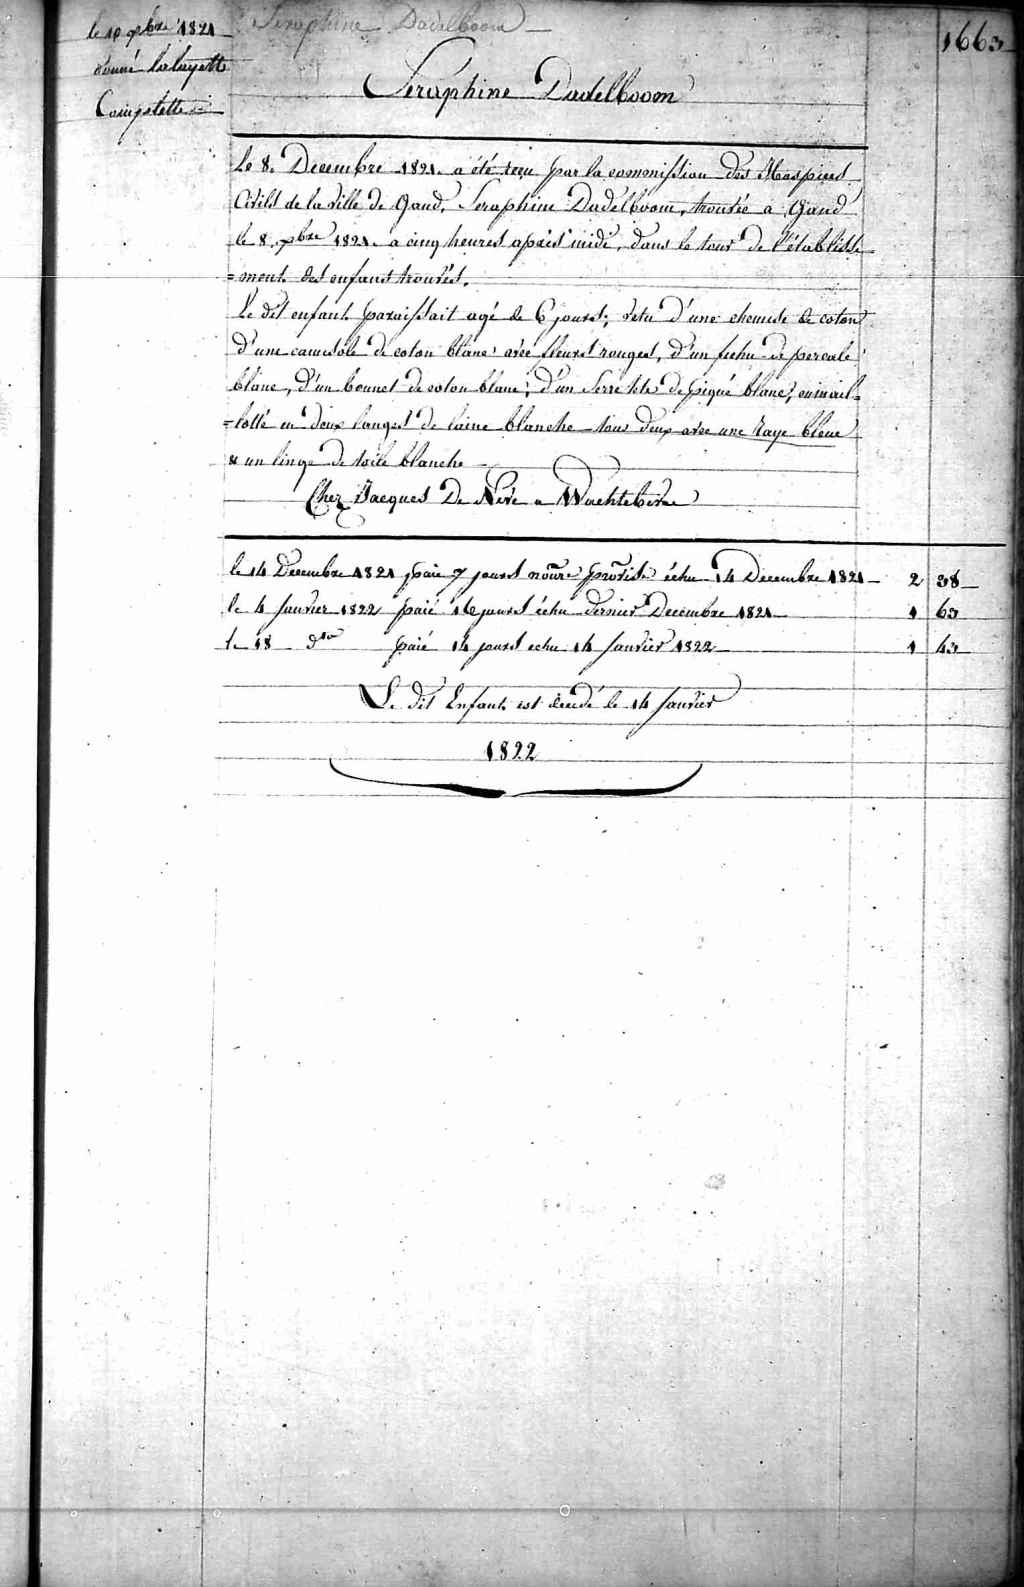 le 10 xbre 1821
donné la layette
Complette
Seraphine Dadelboom
1663
Seraphine Dadelboom
Le 8. Decembre 1821. a été reçu par la commission des Hospices
Civils de la ville de Gand, Seraphine Dadelboom, trouvée a Gand
le 8. xbre 1821. a cinq heures après midi, dans le tour de l'établisse
=ment des enfans trouvés.
Le dit enfant paraissait agé de 6 jours; vetu d'une chemise de coton
d'une camisole de coton blanc avec fleurs rouges, d'un fichu de percale
blanc, d'un bonnet de coton blanc; d'un serre tete de piqué blanc, enmail=
=lotté en deux langes de laine blanche tous deux avec une raye bleue
& un linge de toile blanche
Chez Jacques De Neve a Wachtebeke
le 14 Decembre 1821 paié 7 jours nourre provisre échu 14 Decembre 1821 2 38
le 4 Janvier 1822 paié 16 jours échu dernier Decembre 1821 1 63
le 18 dto paié 14 jours echu 14 Janvier 1822 1 43
Le dit Enfant est décedé le 14 Janvier
1822